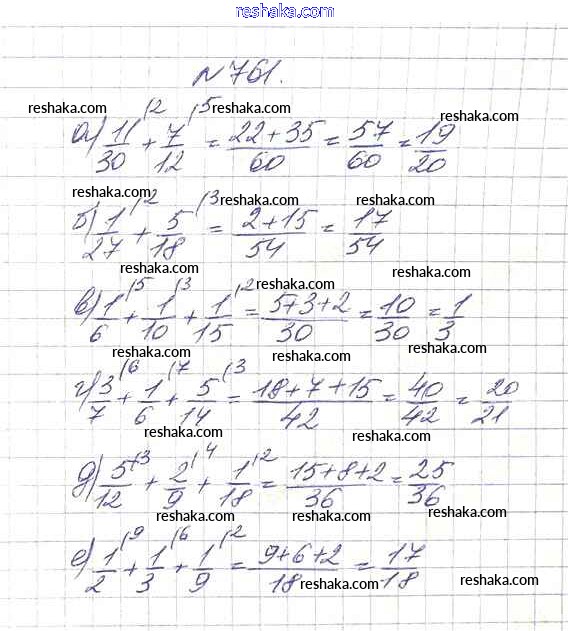 reshaka.com
№761.
reshaka.com reshaka.com reshaka.com
а) 11/30 \2 + 7/12 \5 = (22+35)/60 = 57/60 = 19/20
reshaka.com reshaka.com reshaka.com
б) 1/27 \2 + 5/18 \3 = (2+15)/54 = 17/54
reshaka.com reshaka.com reshaka.com
в) 1/6 \5 + 1/10 \3 + 1/15 \2 = (5+3+2)/30 = 10/30 = 1/3
reshaka.com reshaka.com reshaka.com
г) 3/7 \6 + 1/6 \7 + 5/14 \3 = (18+7+15)/42 = 40/42 = 20/21
reshaka.com reshaka.com reshaka.com
д) 5/12 \3 + 2/9 \4 + 1/18 \2 = (15+8+2)/36 = 25/36
reshaka.com reshaka.com reshaka.com
е) 1/2 \9 + 1/3 \6 + 1/9 \2 = (9+6+2)/18 = 17/18
reshaka.com reshaka.com
reshaka.com